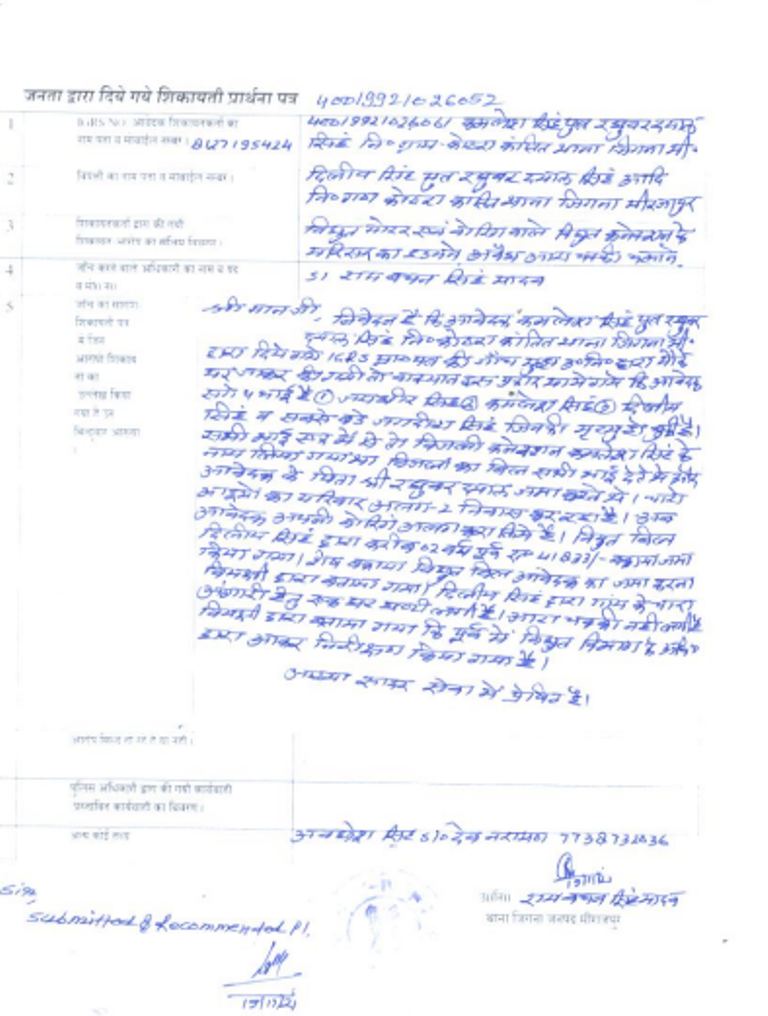 जनता द्वारा दिये गये शिकायती प्रार्थना पत्र 40019921026052
1 IGRS NO. आवेदक शिकायतकर्ता का नाम पता व मोबाईल नम्बर। 8127195424
40019921026061 कमलेश सिंह पुत्र रघुवर दयाल
सिंह नि० ग्राम कोठरा कांतित थाना जिगना मी०
2 विपक्षी का नाम पता व मोबाईल नम्बर।
दिलीप सिंह पुत्र रघुवर दयाल सिंह आदि
नि० ग्राम कोठरा कांतित थाना जिगना मीरजापुर
3 शिकायतकर्ता द्वारा की गयी
शिकायत आरोप का संक्षिप्त विवरण।
विद्युत मोटर एवं बोरिंग वाले विद्युत कनेक्शन के
4 जाँच करने वाले अधिकारी का नाम व पद
व मो० न०
SI राम बचन सिंह यादव
5 जाँच का सारांश
शिकायती पत्र
में जिन
आरोपो शिकायतो का
उल्लेख किया
गया है उन
बिन्दुवार आख्या
।
श्री मान जी,
निवेदन है कि आवेदक कमलेश सिंह पुत्र रघुवर
दयाल सिंह नि० कोठरा कांतित थाना जिगना मी०
द्वारा दिये गये IGRS प्रा० पत्र की जाँच मुझ उ०नि० द्वारा मौके
पर जाकर की गयी तो इस प्रकार पाये गये कि आवेदक
सगे 4 भाई है ① सिंह ② कमलेश सिंह ③ दिलीप
सिंह व सबसे बडे जगदीश सिंह जिनकी मृत्यु हो चुकी है।
सभी भाई एक में थे तो बिजली कनेक्शन कमलेश सिंह के
नाम लिया गया था बिजली का बिल सभी भाई देते थे
आवेदक के पिता श्री रघुवर दयाल जमा करते थे। चारो
भाइयों का परिवार अलग-2 निवास कर रहा है।
आवेदक अपनी बोरिंग अलग करा लिये है। विद्युत बिल
दिलीप सिंह द्वारा करीब 02 वर्ष पूर्व रु० 41833/- बकाया जमा
किया गया। शेष बकाया विद्युत बिल आवेदक को जमा करना
विपक्षी द्वारा बताया गया। दिलीप सिंह द्वारा
हेतु है। आटा चक्की नही
विपक्षी द्वारा बताया गया कि पूर्व में विद्युत विभाग के
द्वारा आकर निरीक्षण किया गया है।
आख्या सादर सेवा में प्रेषित है।
आरोप सिद्ध हो रहे है या नही।
पुलिस अधिकारी द्वारा की गयी कार्यवाही
प्रस्तावित कार्यवाही का विवरण।
अन्य कोई तथ्य
सिंह S/o देव नरायण
उ०नि० राम बचन सिंह यादव
थाना जिगना जनपद मीरजापुर
Sir,
Submitted & Recommended Pl.